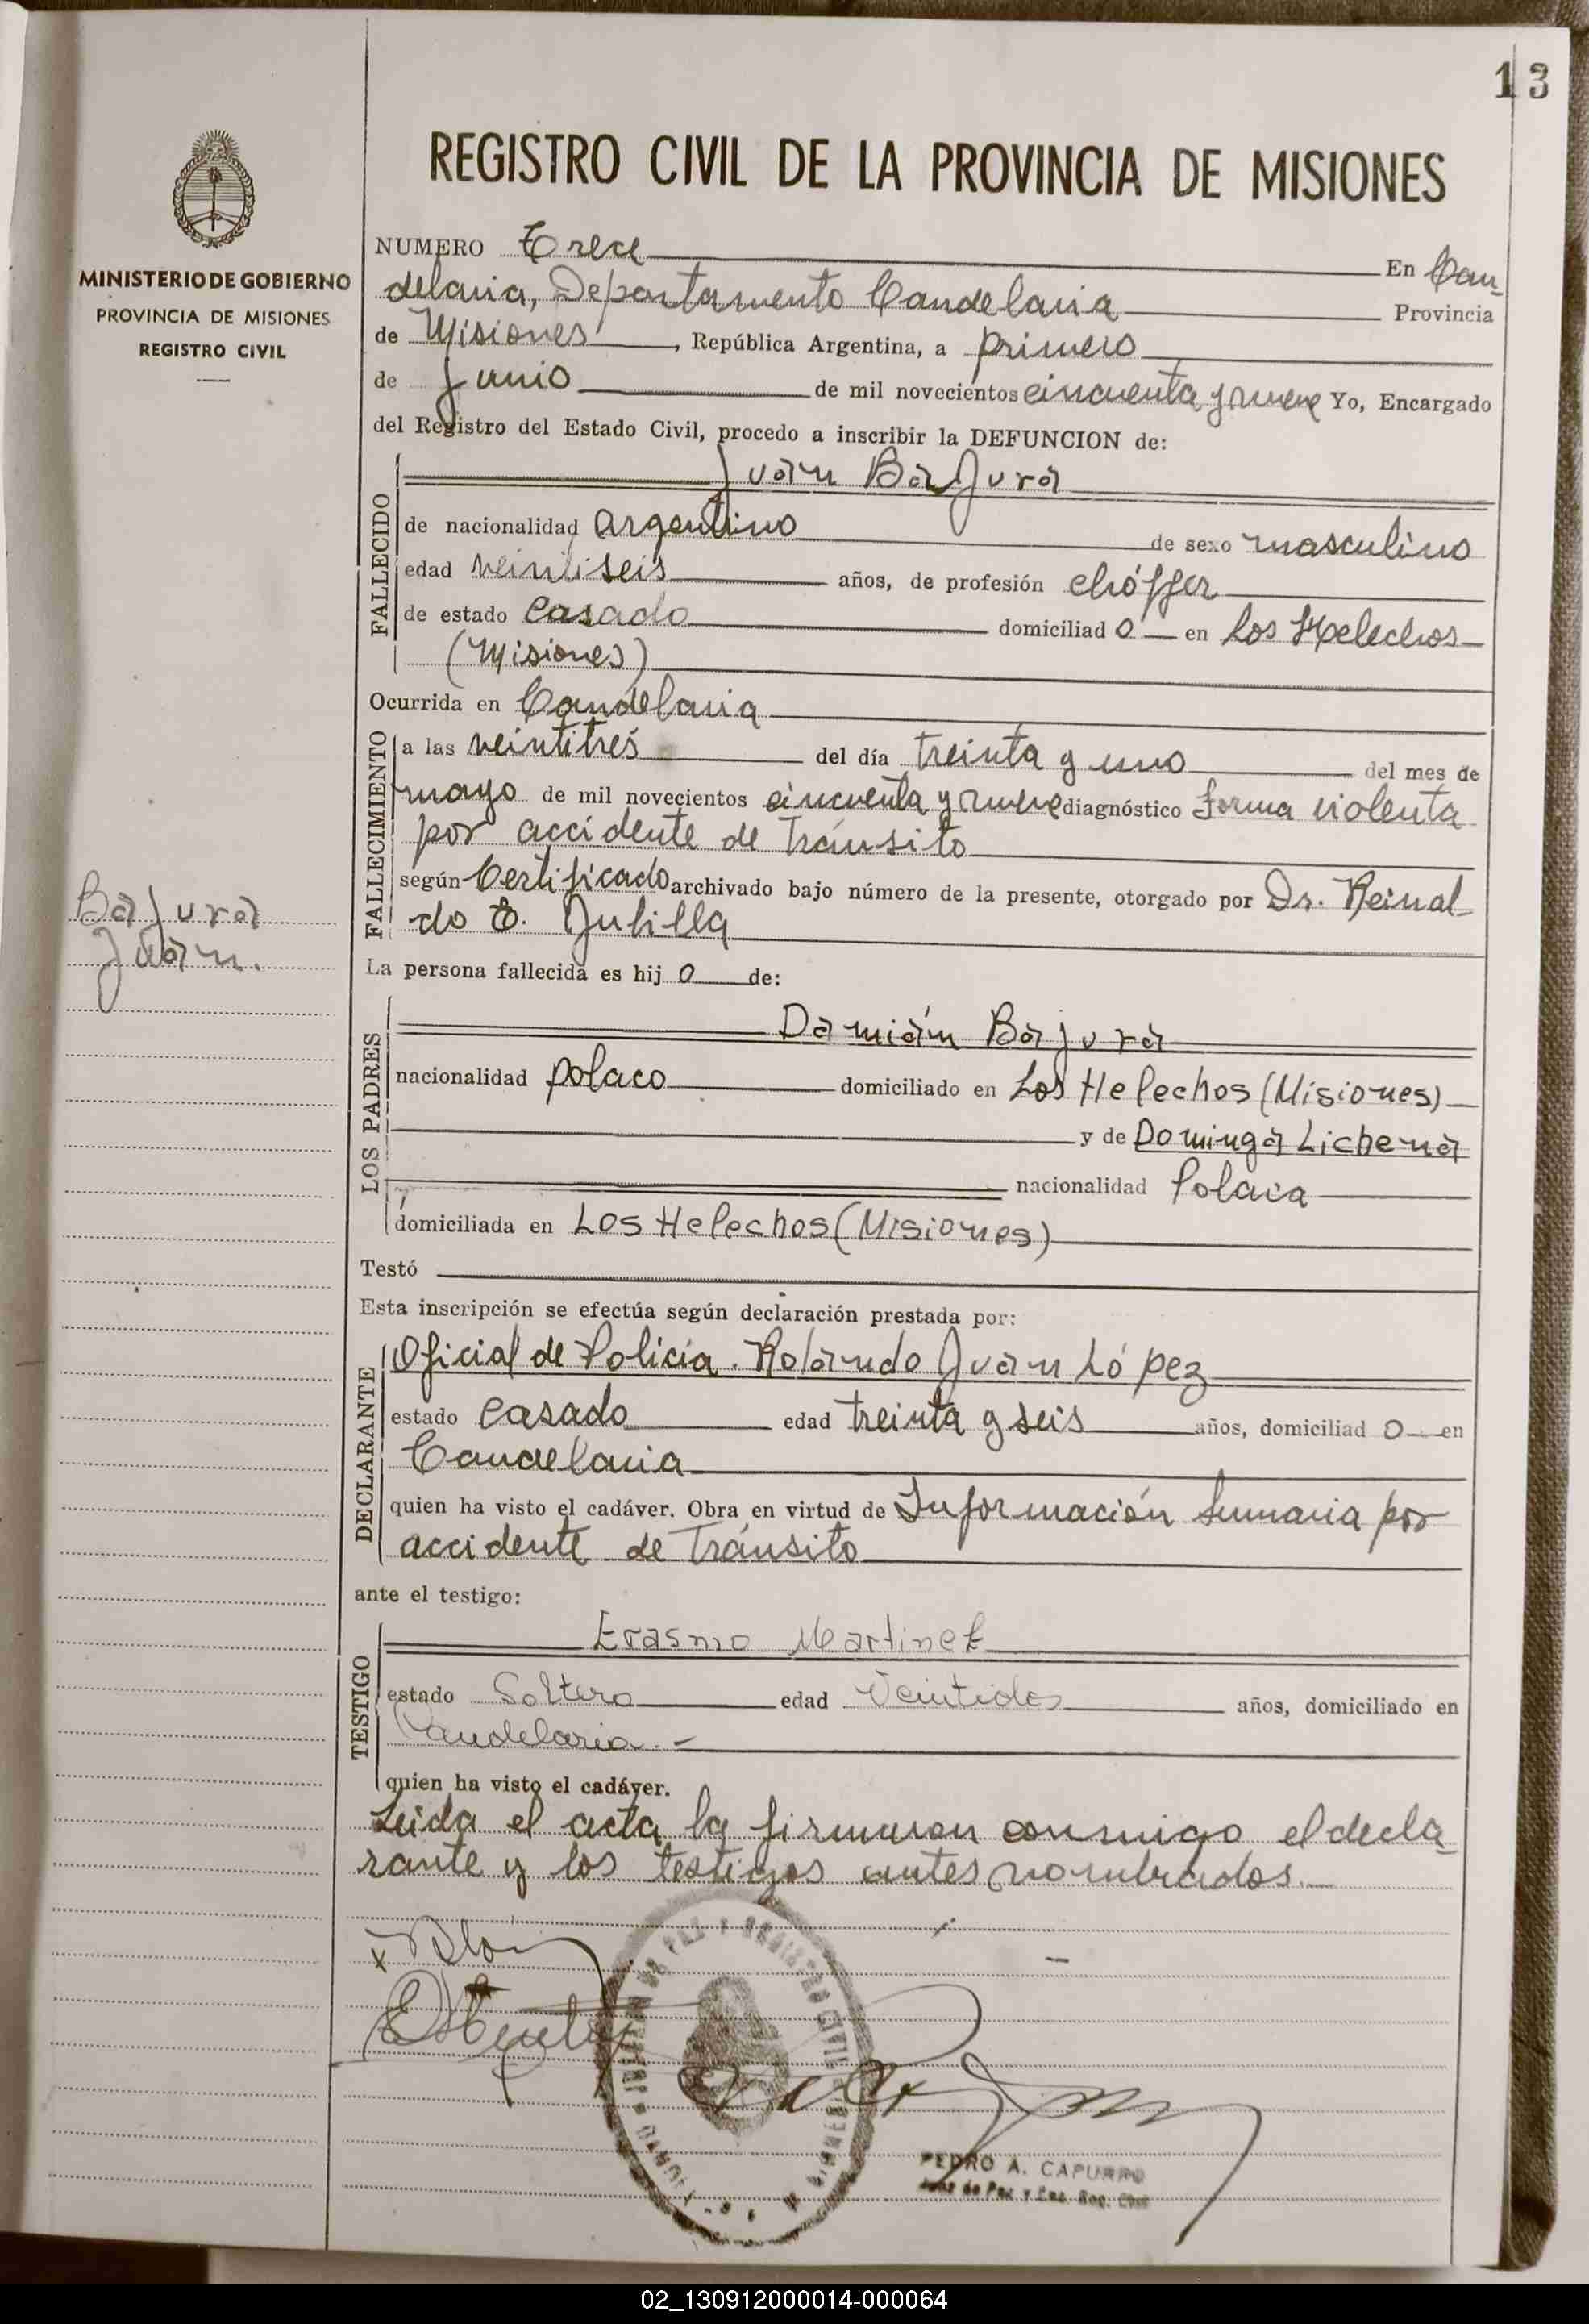 13
REGISTRO CIVIL DE LA PROVINCIA DE MISIONES
MINISTERIO DE GOBIERNO
PROVINCIA DE MISIONES
REGISTRO CIVIL
NUMERO Trece En Can-
delaria, Departamento Candelaria Provincia
de Misiones, República Argentina, a primero
de Junio de mil novecientos cincuenta y nueve Yo, Encargado
del Registro del Estado Civil, procedo a inscribir la DEFUNCION de:
FALLECIDO
Juan Bajura
de nacionalidad argentino de sexo masculino
edad veintiseis años, de profesión chóffer
de estado casado domiciliado en Los Helechos
(Misiones)
Ocurrida en Candelaria
FALLECIMIENTO
a las veintitrés del día treinta y uno del mes de
mayo de mil novecientos cincuenta y nueve diagnóstico forma violenta
por accidente de tránsito
según Certificado archivado bajo número de la presente, otorgado por Dr. Reinal-
do
Bajura
Juan.
La persona fallecida es hijo de:
LOS PADRES
Damián Bajura
nacionalidad polaco domiciliado en Los Helechos (Misiones)
y de Dominga Lichena
nacionalidad Polaca
domiciliada en Los Helechos (Misiones)
Testó
Esta inscripción se efectúa según declaración prestada por:
DECLARANTE
Oficial de Policía. Rolando Juan López
estado casado edad treinta y seis años, domiciliado en
Candelaria
quien ha visto el cadáver. Obra en virtud de Información Sumaria por
accidente de Tránsito
ante el testigo:
TESTIGO
Erasmo Martinez
estado Soltero edad Veintidos años, domiciliado en
Candelaria.-
quien ha visto el cadáver.
Leida el acta, la firmaron conmigo el decla-
rante y los testigos antes nombrados.
PEDRO A. CAPURRO
Juez de Paz y Enc. Reg. Civil
02_130912000014-000064